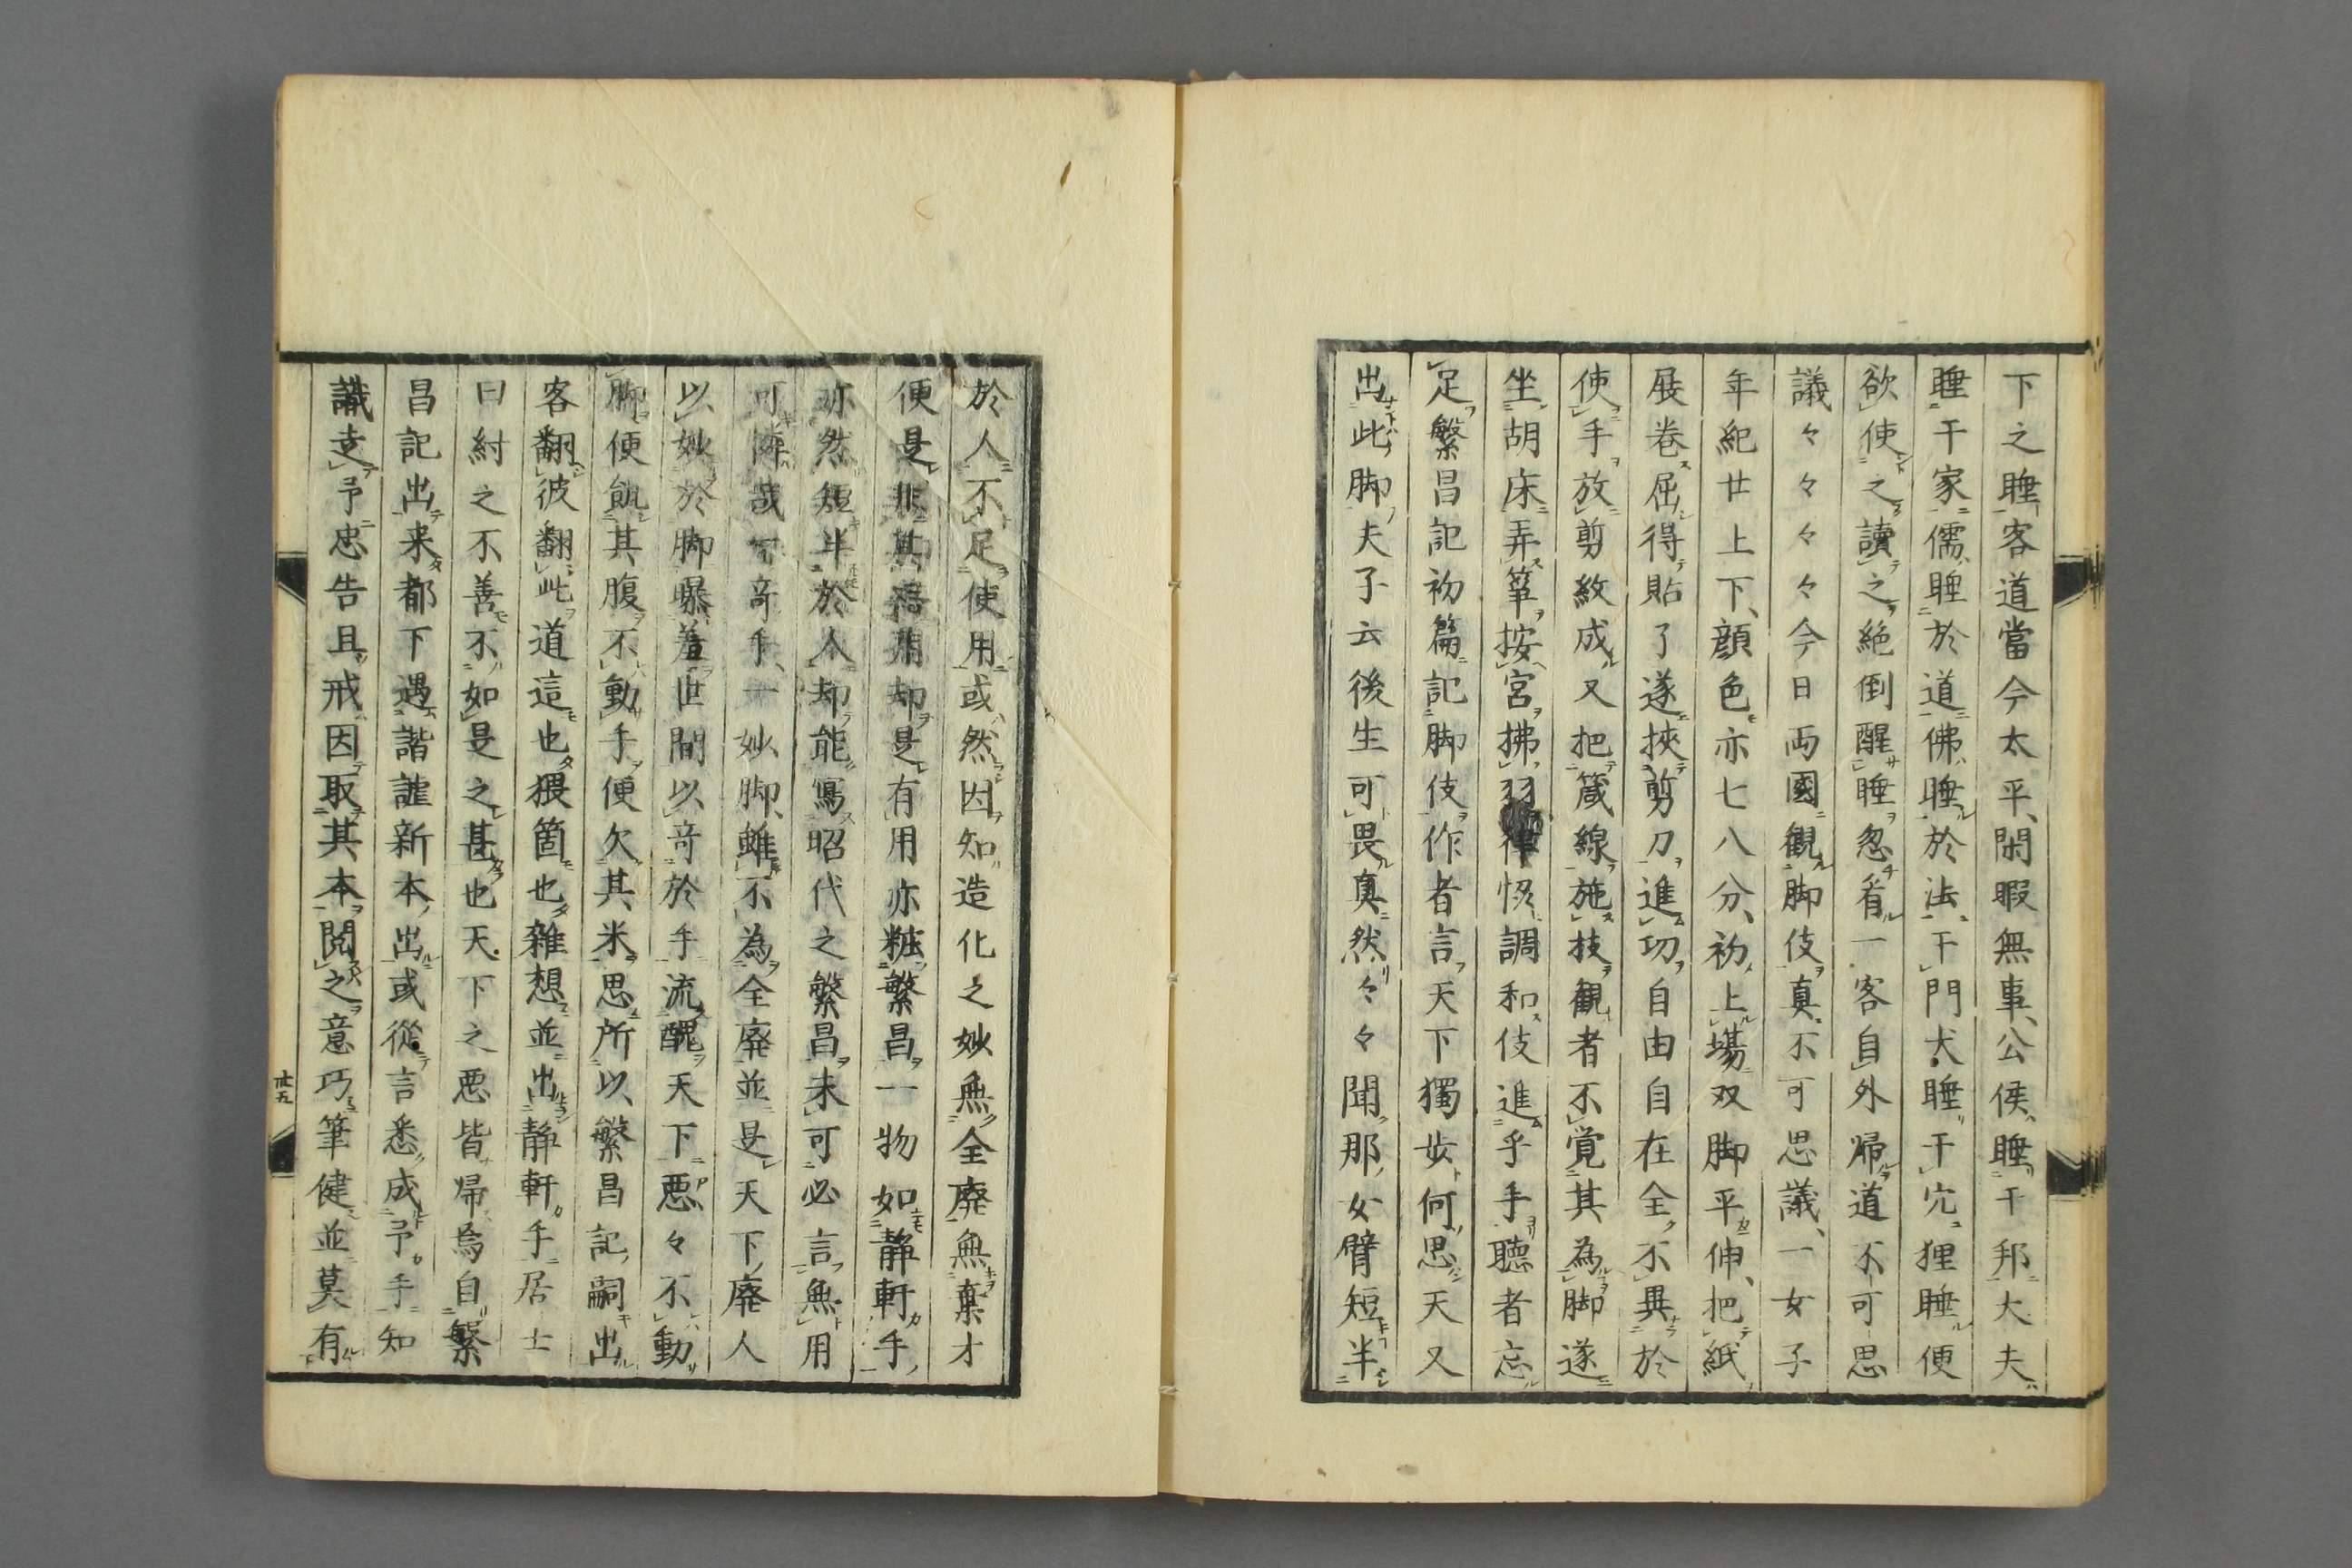 下之睡客道當今太平、閑暇無事、公侯睡干邦大夫
睡干家儒睡於道佛睡於法干門犬睡干穴狸睡便
欲使之讀之絶倒醒睡忽看一客自外帰道不可思
議々々々々今日両國觀脚伎真不可思議、一女子
年紀廿上下、顔色亦七八分、初上場双脚平伸、把紙
展巻屈得貼了遂挾剪刀進功自由自在全不異於
使手放剪紋成又把箴線施技觀者不覚其為脚遂
坐胡床弄箏按宮拂羽律恢調和伎進乎手聽者忘
足繁昌記初篇記脚伎作者言天下獨歩何思天又
出此脚夫子云後生可畏真然々々聞那女臂短半
於人不足使用或然因知造化之妙無全廢無棄才
便是非其却是有用亦粧繁昌一物如静軒手
亦然短半於人却能寫昭代之繁昌未可必言無用
可憐哉奇手、一妙脚、雖不為全廢並是天下廢人
以妙於脚曝羞世間以奇於手流醜天下悪々不動
脚便飢其腹不動手便欠其米思所以繁昌記嗣出
客翻彼翻此道這也猥箇也雑想並出静軒手居士
曰紂之不善不如是之甚也天下之悪皆帰焉自繁
昌記出来都下遇諧謔新本出或從言悉成予手知
識走予忠告且戒因取其本閲之意巧筆健並莫有
廿五